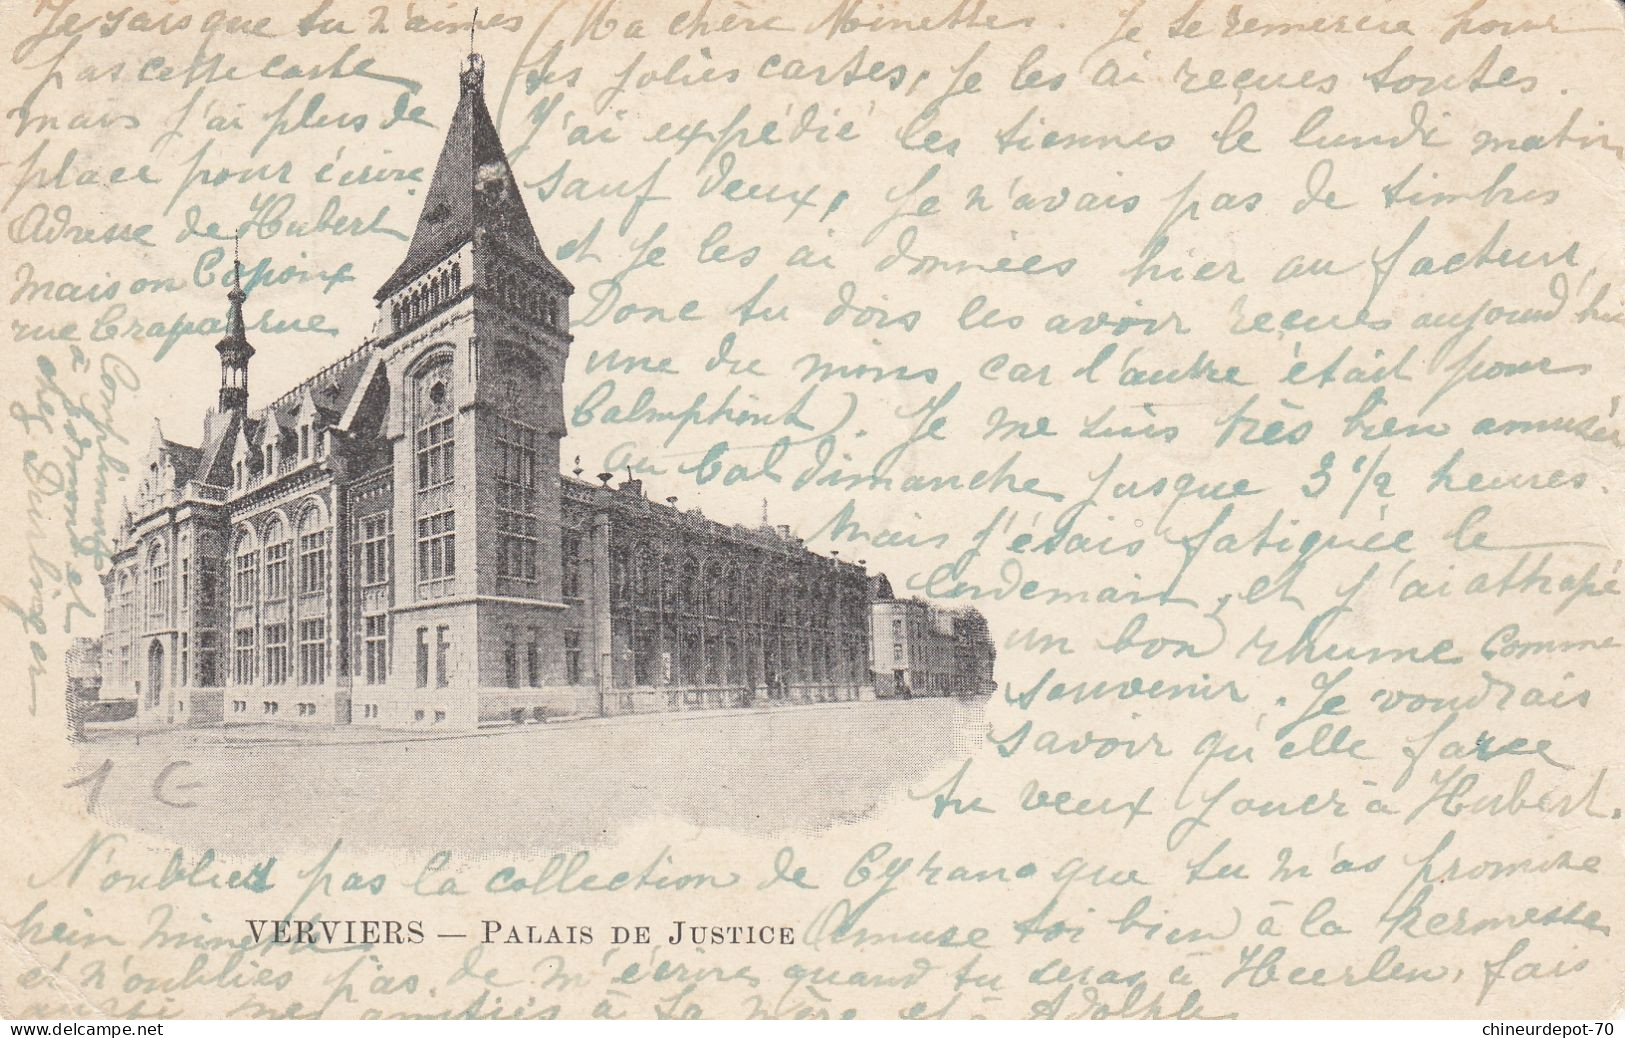 Je sais que tu n'aimes
pas cette carte
mais j'ai plus de
place pour écrire
Adresse de Hubert
maison Caponx
rue Crapaurue
Compliments
à Edmond et
chez Durlinger
Ma chère Minettes. Je te remercie pour
tes jolies cartes, je les ai reçues toutes.
J'ai expédié les tiennes le lundi matin
sauf deux, je n'avais pas de timbres
et je les ai données hier au facteur,
Donc tu dois les avoir reçues aujourd'hui
une du moins car l'autre était pour
Calmpthout). Je me suis très bien amusée
au bal dimanche jusque 3 1/2 heures.
Mais j'étais fatiguée le
lendemain, et j'ai atrapé
un bon rhume comme
souvenir. Je voudrais
savoir qu'elle farce
tu veux jouer à Hubert.
N'oublies pas la collection de Cyrano que tu m'as promise
hein Minette Amuse toi bien à la kermesse
et n'oublies pas de m'écrire quand tu seras à Heerlen, fais
aussi mes amitiés à ta mère et à Adolphe
1 €
VERVIERS — PALAIS DE JUSTICE
chineurdepot-70